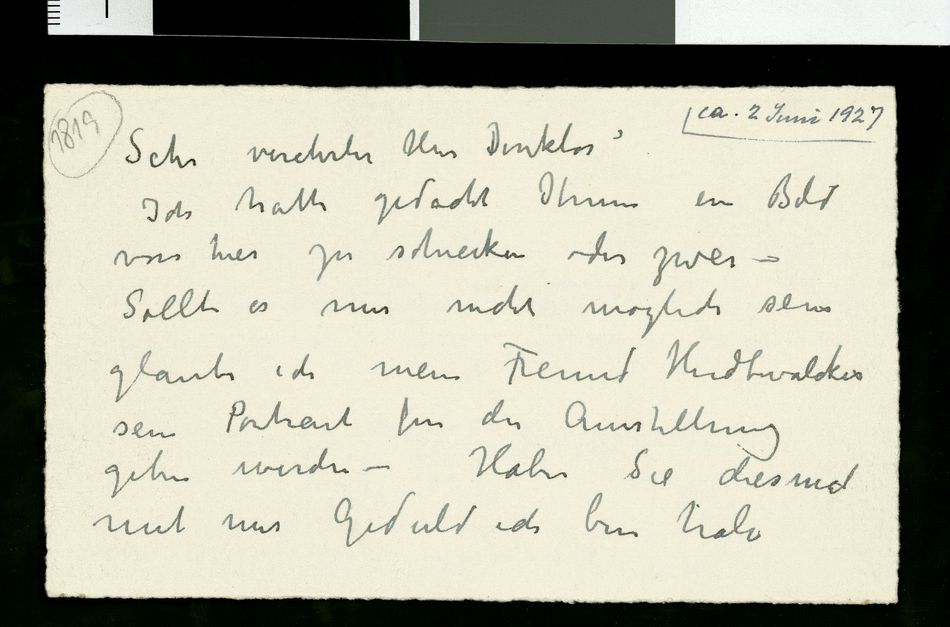 1819
[ca. 2 Juni 1927
Sehr verehrter Herr Direktor
Ich hatte gedacht Ihnen ein Bild
von hier zu schicken oder zwei –
Sollte es mir nicht möglich sein
glaube ich mein Freund Hudtwalcker
sein Portrait für die Ausstellung
geben würde – Haben Sie diesmal
mit mir Geduld ich bin